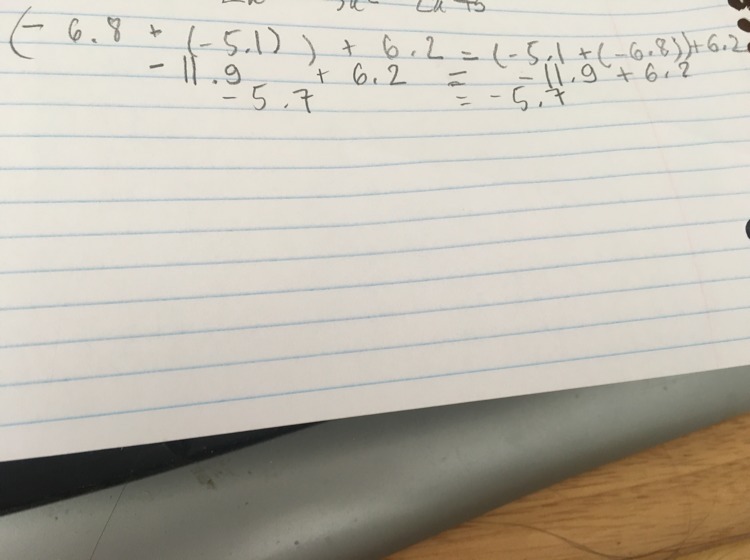 (- 6.8 + (-5.1) ) + 6.2 = (-5.1 + (-6.8)) + 6.2
- 11.9 + 6.2 = -11.9 + 6.2
- 5.7 = - 5.7